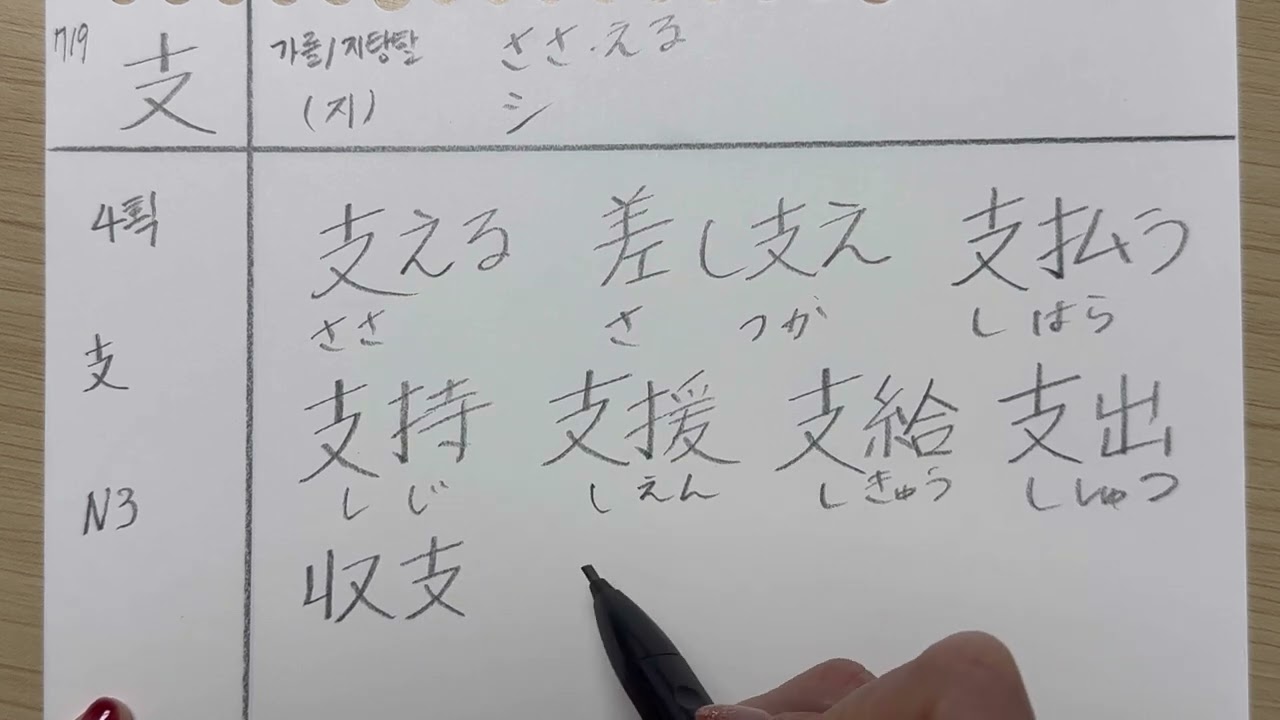 719 支 가를/지탱할 ささ·える
(지) シ
4획 支える 差し支え 支払う
ささ さ つか しはら
支 支持 支援 支給 支出
しじ しえん しきゅう ししゅつ
N3 収支